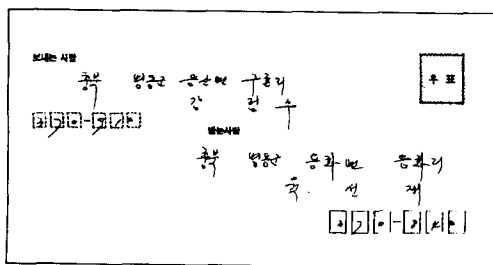 보내는 사람
우표
충북 영동군 용산면 구촌리
강 림 수
370-910
받는사람
충북 영동군 용화면 용화리
선 재
370-840